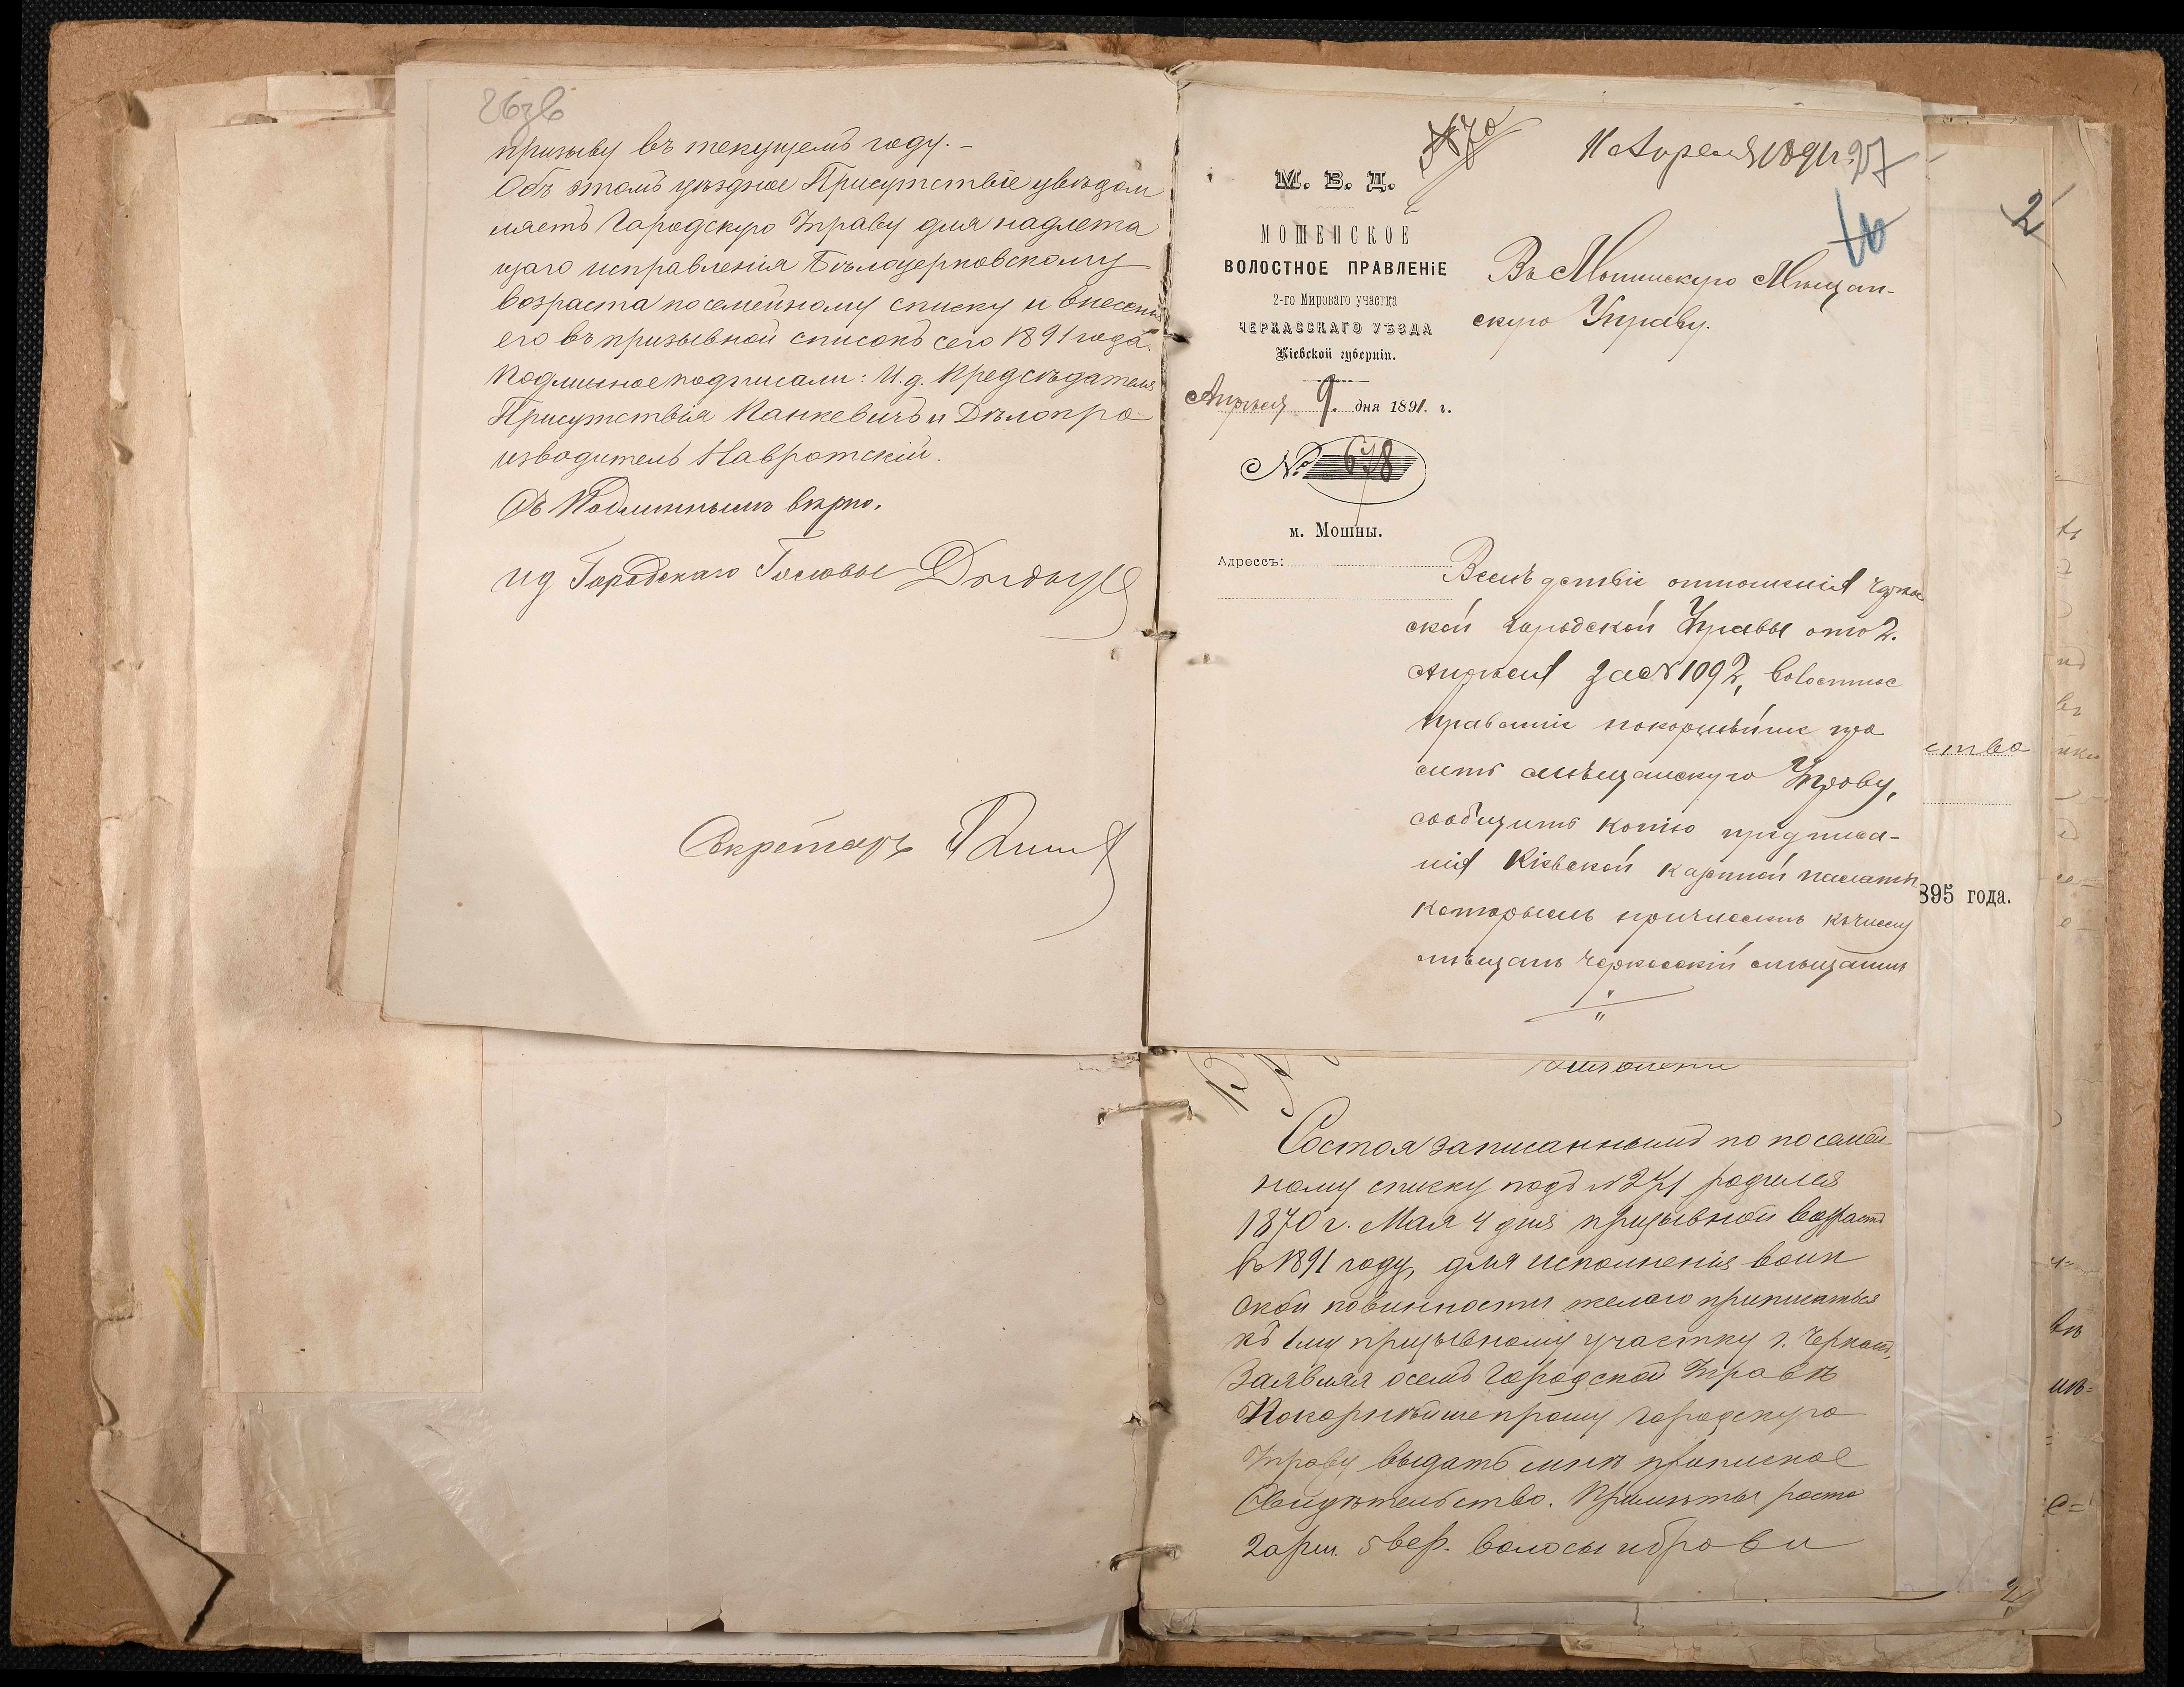 26 об
призыву въ текущемъ году. –
Объ этомъ уѣздное Присутствіе увѣдом
ляетъ Городскую Управу для надлежа
щаго исправленія Бѣлоцерковскому
возраста по семейному списку и внесенія
его въ призывной списокъ сего 1891 года.
Подлинное подписали: И. д. Предсѣдателя
Присутствія Панкевичъ и Дѣлопро
изводитель Навротскій.
Съ Подлиннымъ вѣрно.
ИД Городскаго Головы
Секретарь
№ 70
11 Апреля 1891 г. 27
М. В. Д.
МОШЕНСКОЕ
ВОЛОСТНОЕ ПРАВЛЕНІЕ
2-го Мироваго участка
ЧЕРКАССКАГО УѢЗДА
Кіевской губерніи.
Апрѣля 9. дня 1891. г.
№ 678
м. Мошны.
Адрессъ:
Въ Мошнскую Мѣщан-
скую Управу.
Вслѣдствіе отношенія Черкас
ской Городской Управы отъ 2.
Апрѣля за № 1092, волостное
правленіе покорнѣйше про
ситъ мѣщанскую Управу,
сообщить копію предписа-
нія Кіевской казенной палаты
которымъ причисленъ къ числу
мѣщанъ Черкасскій мѣщанинъ
2
ства
895 года.
Состоя записаннымъ по посемей-
ному списку подъ № 271 родился
1870 г. Мая 4 дня призывной возрастъ
въ 1891 году, для исполненія воин
ской повинности желаю приписаться
къ 1му призывному участку г. Черкассъ,
Заявляя о семъ Городской Управѣ
Покорнѣйше прошу Городскую
Управу выдать мнѣ приписное
Свидѣтельство. Примѣты роста
2 арш. 5 вер. волосы и брови